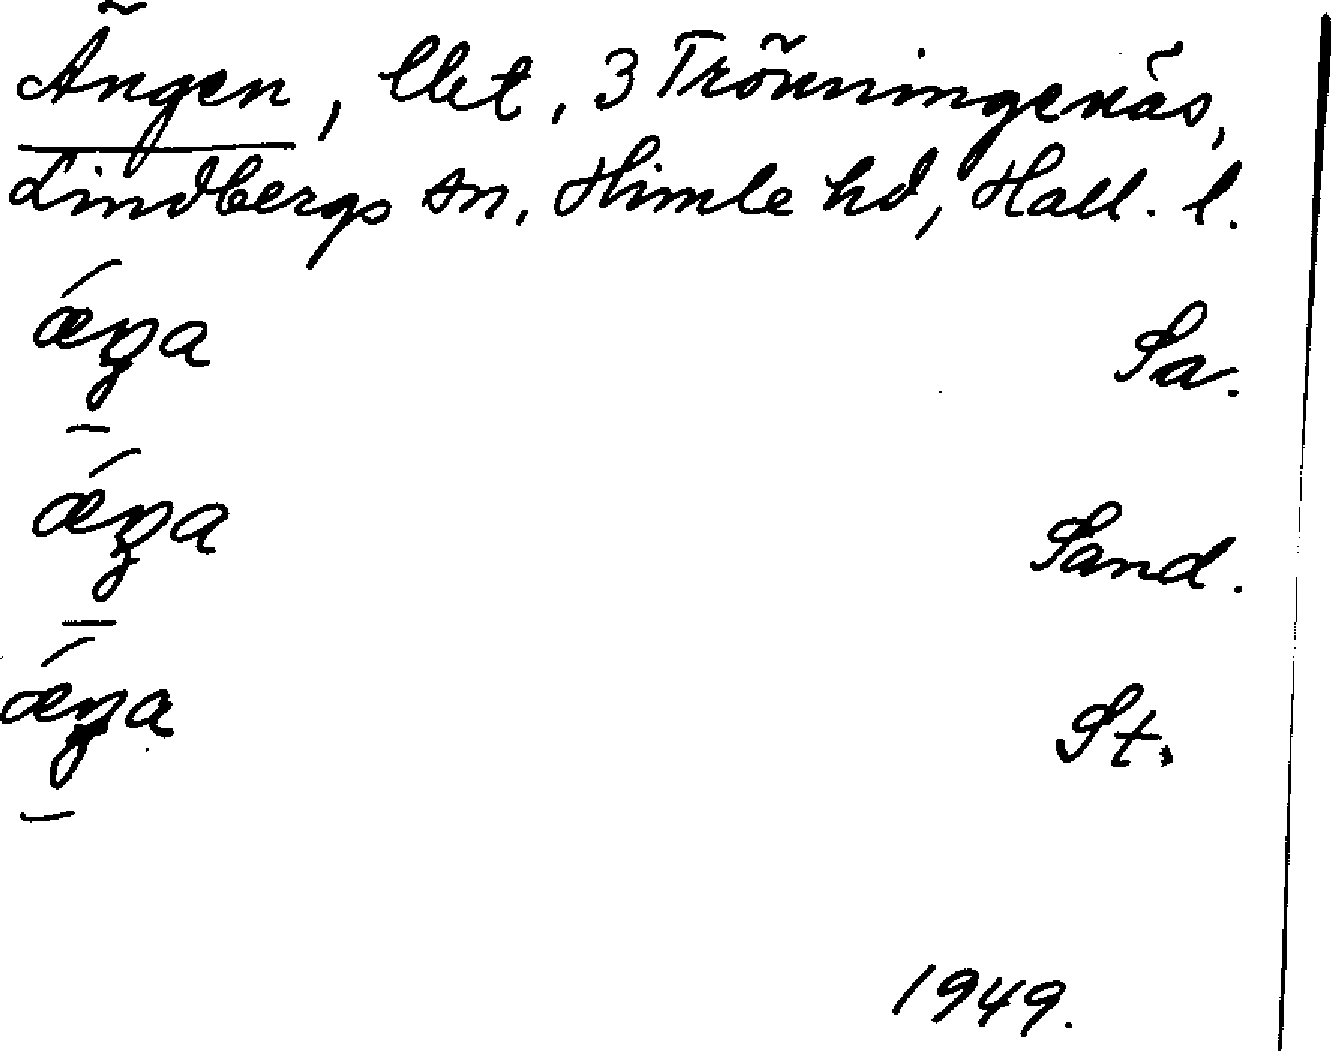 Ängen, lht, 3 Trönningenäs,
Lindbergs sn, Himle hd, Hall. l.
ǽŋa Sa.
ǽŋa Sand.
ǽŋa St.
1949.